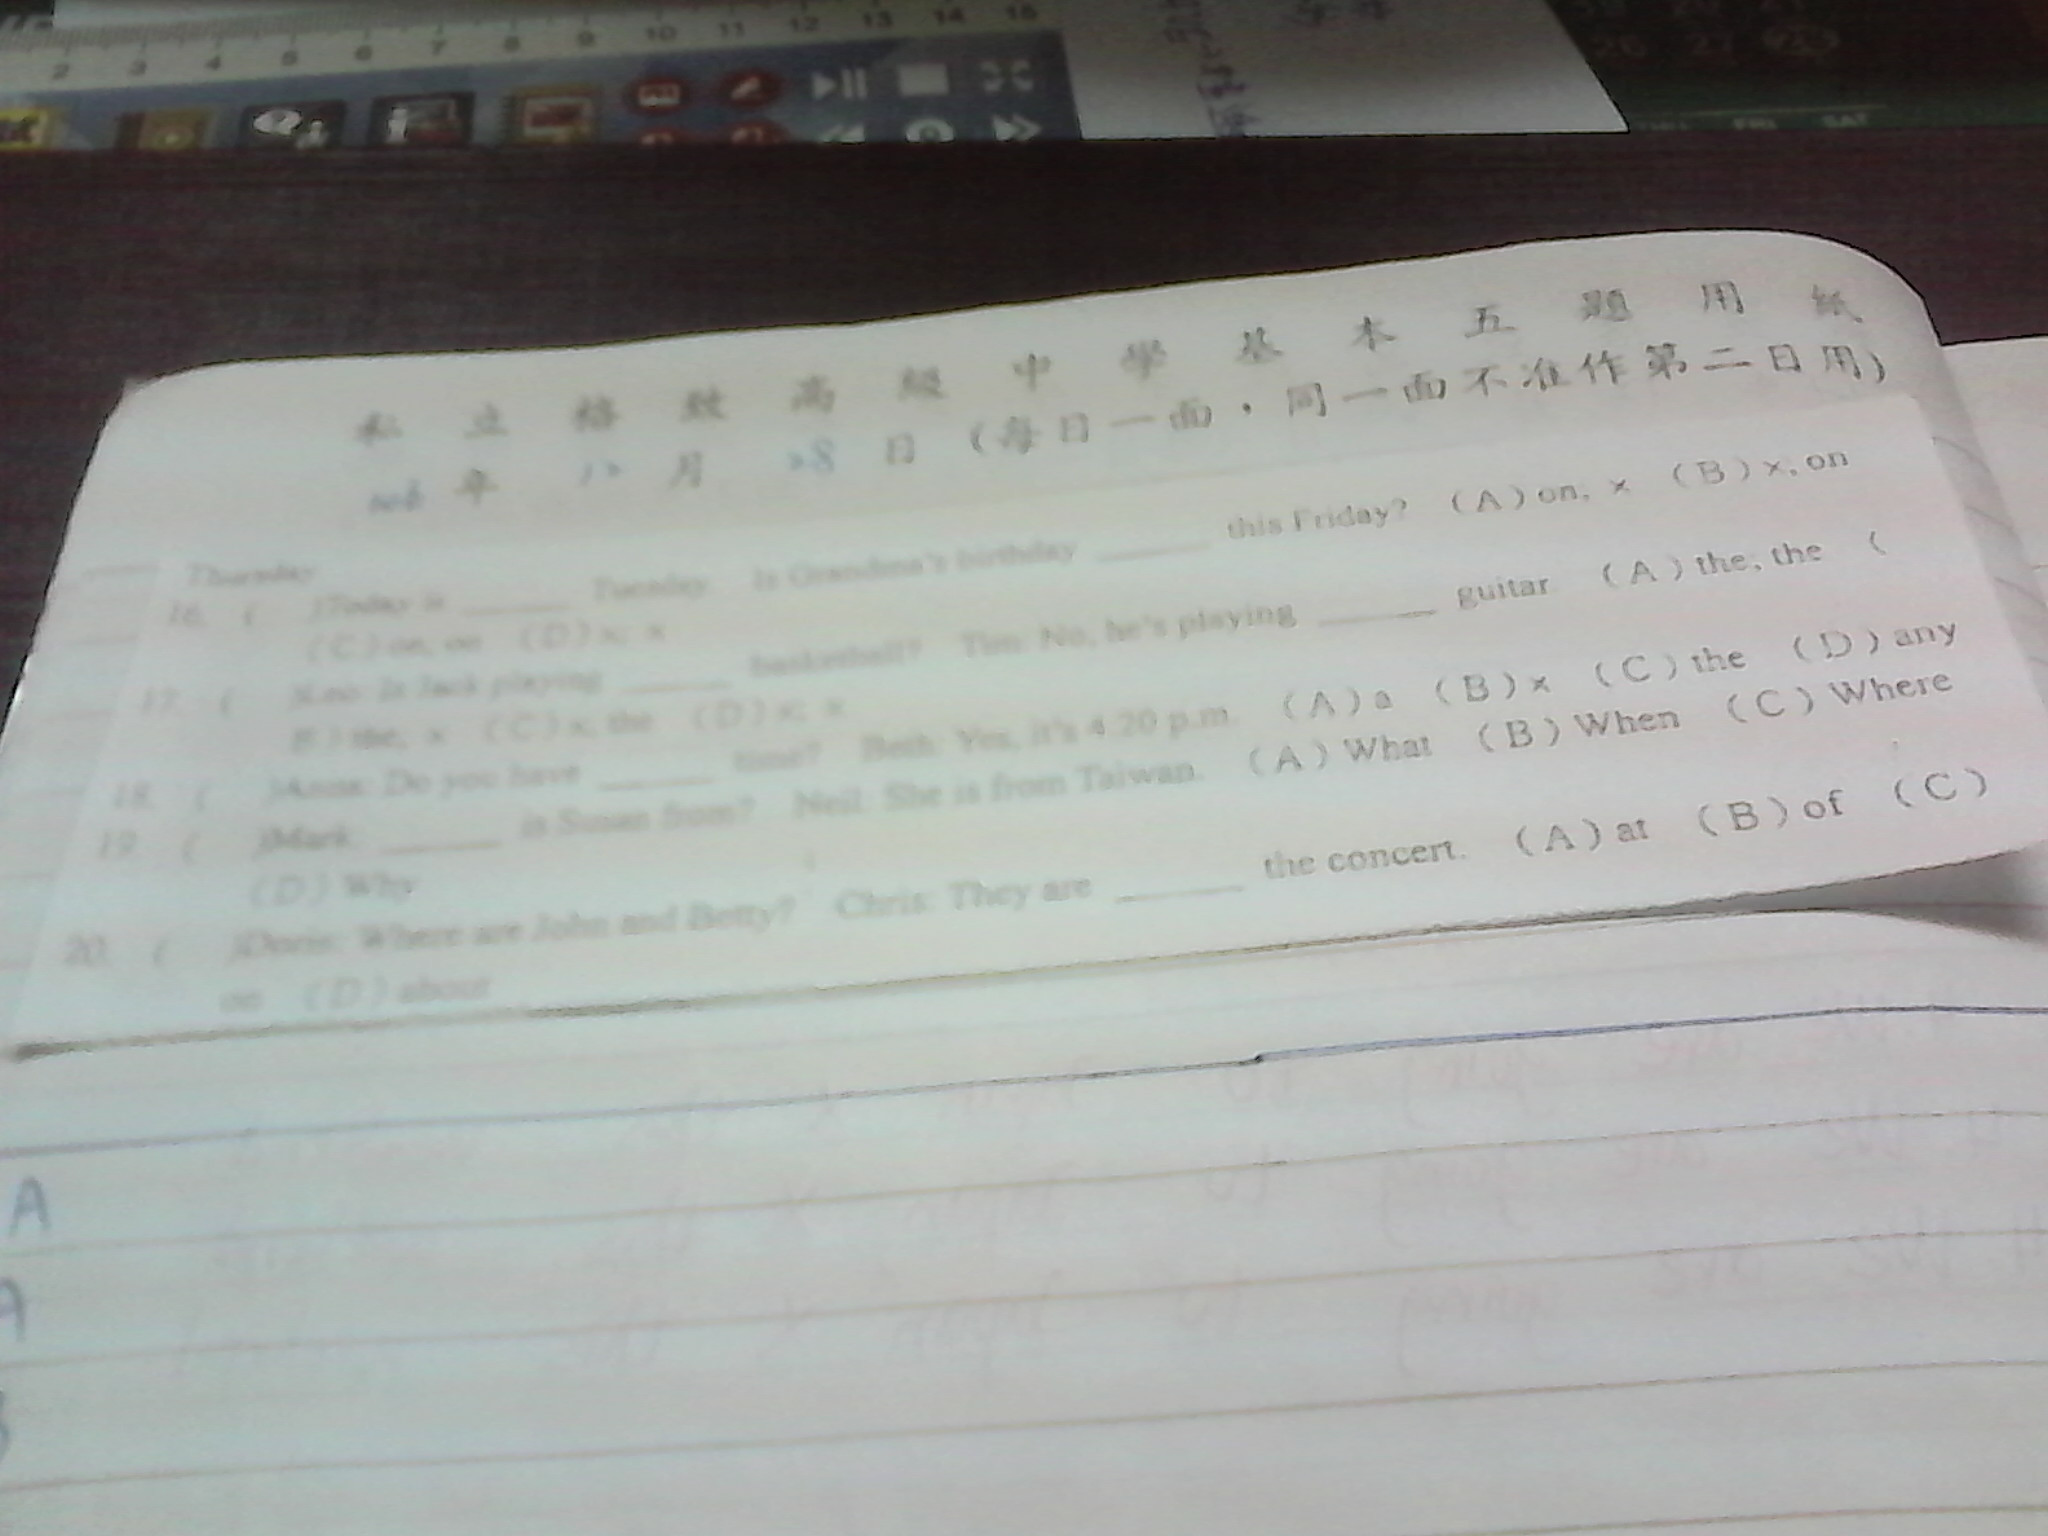 2 3 4 5 6 7 8 9 10 11 12 13 14 15
26 27
FRI SAT
私立格致高級中學基本五題用紙
106 年 12 月 28 日 (每日一面，同一面不准作第二日用)
Thursday
16. ( )Today is ______ Tuesday. Is Grandma's birthday ______ this Friday? (A) on, x (B) x, on
(C) on, on (D) x, x
17. ( )Leo: Is Jack playing ______ basketball? Tim: No, he's playing ______ guitar. (A) the, the (
B) the, x (C) x, the (D) x, x
18. ( )Anna: Do you have ______ time? Beth: Yes, it's 4:20 p.m. (A) a (B) x (C) the (D) any
19. ( )Mark: ______ is Susan from? Neil: She is from Taiwan. (A) What (B) When (C) Where
(D) Why
20. ( )Doris: Where are John and Betty? Chris: They are ______ the concert. (A) at (B) of (C)
on (D) about
A